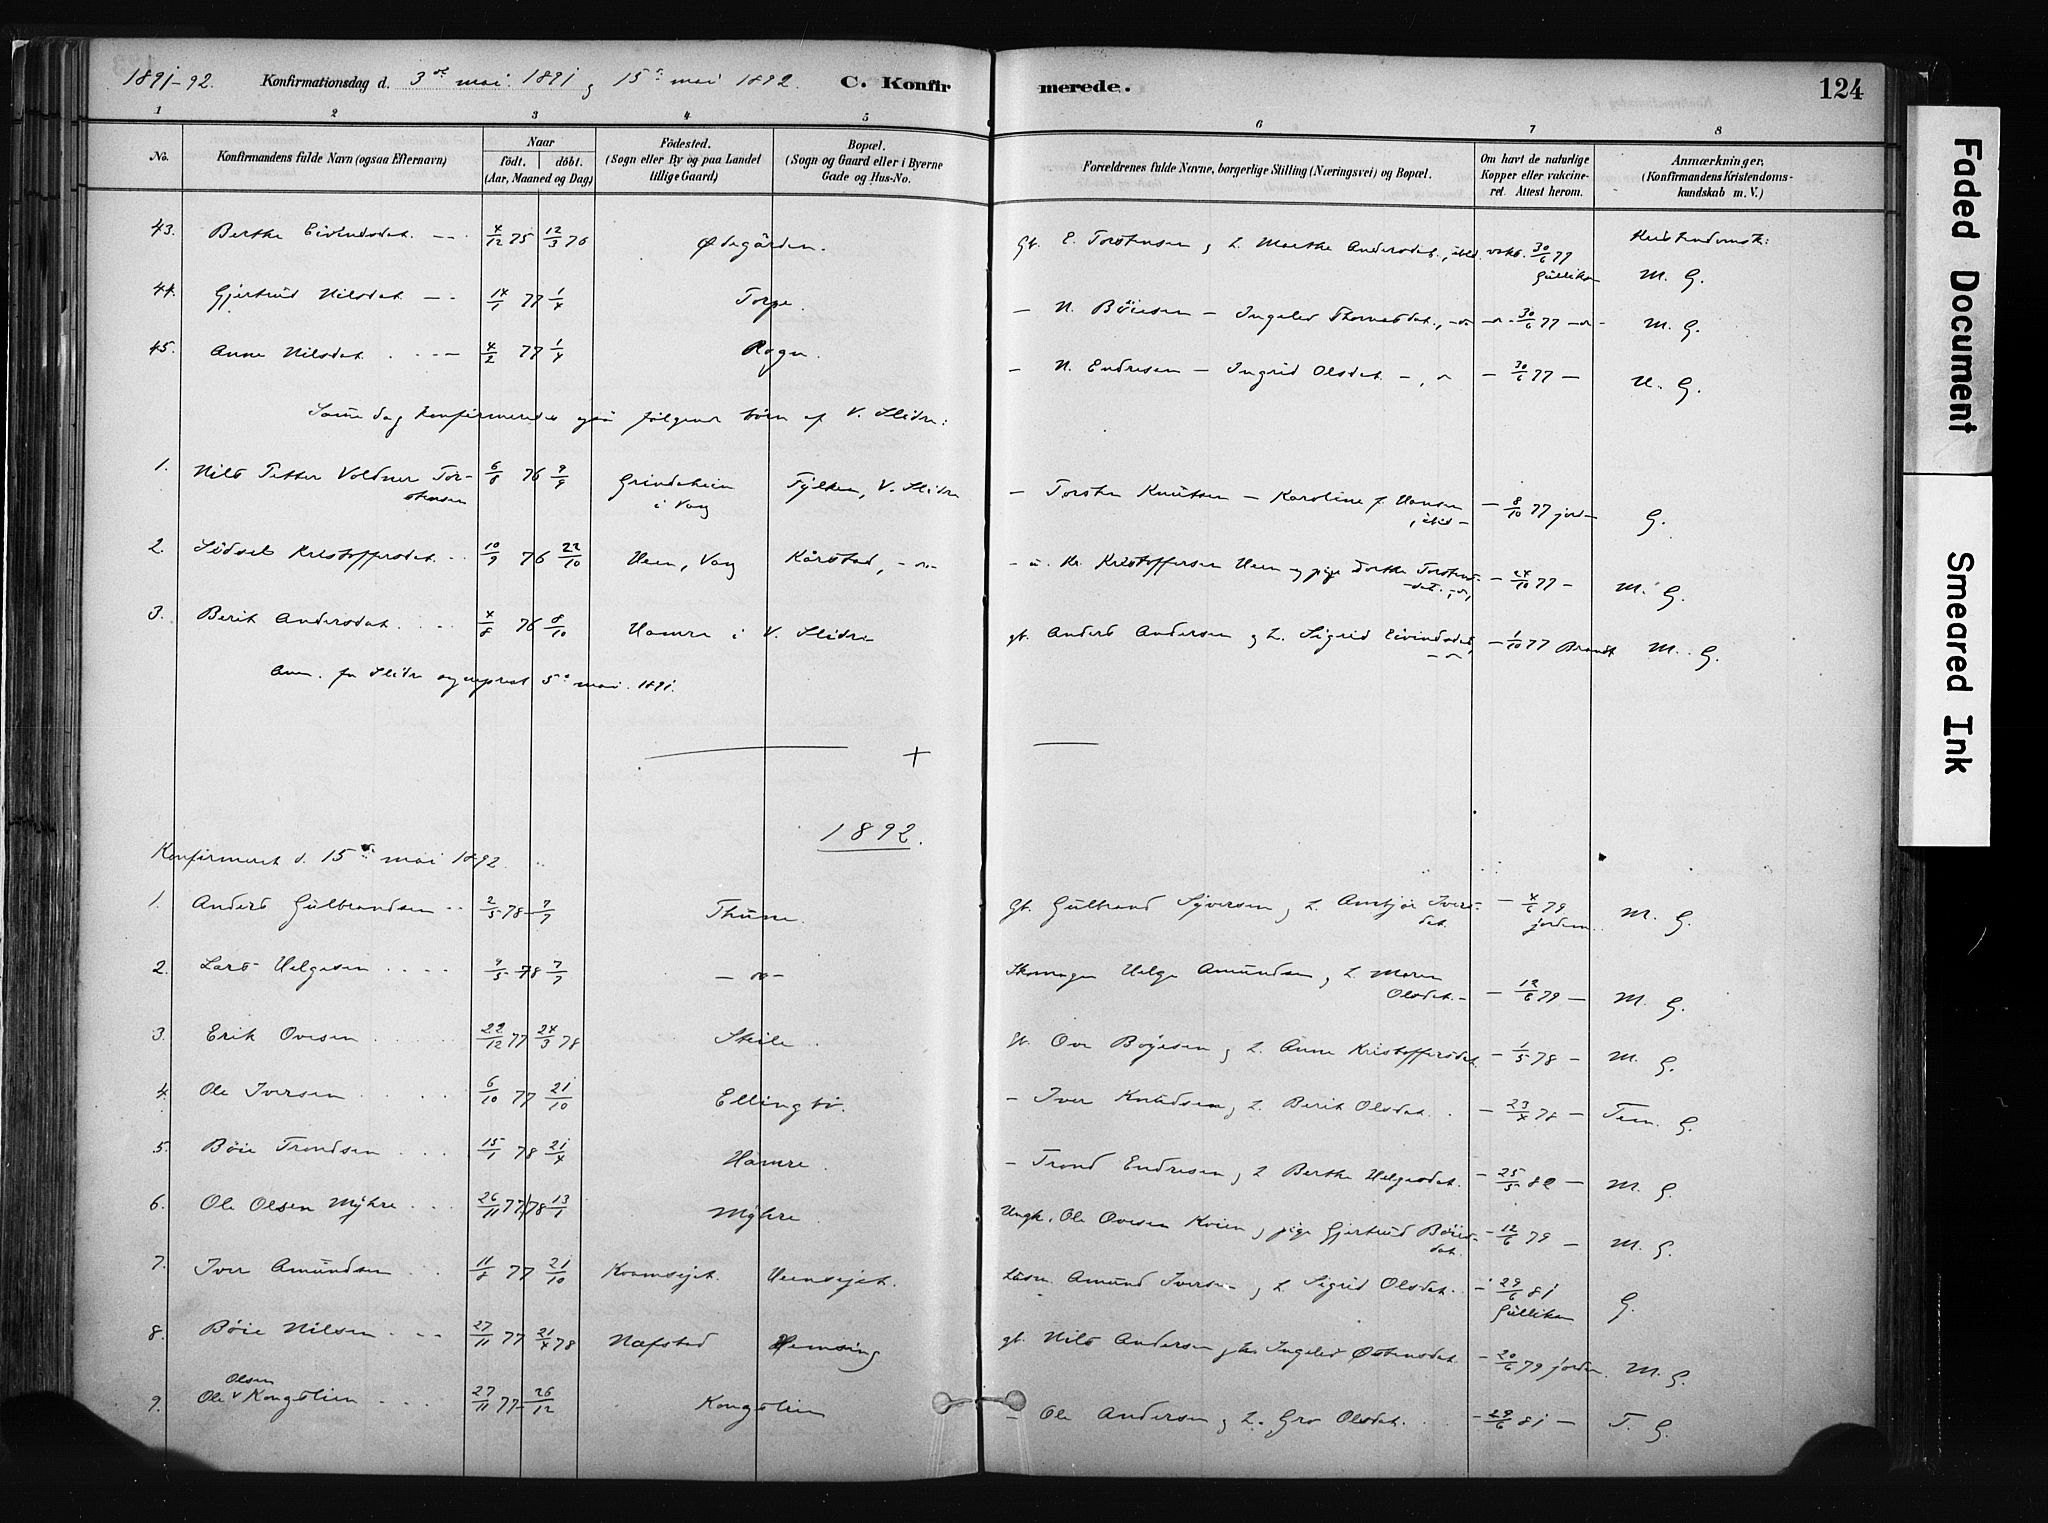 1891-92. Konfirmationsdag d. 3de mai 1891 og 15de mai 1892. C. Konfirmerede. 124
1 2 3 4 5 6 7 8
No. Konfirmandens fulde Navn (ogsaa Efternavn) Naar født. døbt. (Aar, Maaned og Dag) Födested. (Sogn eller By og paa Landet tillige Gaard) Bopæl. (Sogn og Gaard eller i Byerne Gade og Hus-No. Forældrenes fulde Navne, borgerlige Stilling (Næringsvei) og Bopæl. Om havt de naturlige Kopper eller vakcineret. Attest herom. Anmærkninger. (Konfirmandens Kristendomskundskab m. V.)
43. Berthe Eivindsdat. 4/12 75 12/3 76 Ødegården. Gb. E. Torstensen og L. Marthe Andersdat., ibid. vakc. 30/6 77 Gulliksen Kristendomsk: M. G.
44. Gjertrud Nilsdat. 14/1 77 1/4 Torpe. — N. Böiesen — Ingeleiv Thomasdat., 30/6 77 M. G.
45. Anne Nilsdat. 4/2 77 1/4 Rogn. — N. Endresen — Ingrid Olsdat. — 30/6 77 — M. G.
Samme dag konfirmeredes også følgende børn af V. Slidre:
1. Nils Petter Voldner Torstensen 6/8 76 9/9 Grindaheim i Vang Fylken, V. Slidre — Torsten Knutsen — Karoline f. Hansen, ibid — 8/10 77 jord— G.
2. Sidsel Kristoffersdat. 10/9 76 22/10 Heen, Vang Kårstad, — u. Kr. Kristoffersen Heen og pige Dorthe Torstensdat. — 24/10 77 — M. G.
3. Berit Andersdat. 4/8 76 8/10 Hamre i V. Slidre gb. Anders Andersen og L. Sigrid Eivindsdat, — 1/10 77 Brandt M. G.
Anm. fra Slidre sogneprest 5te mai 1891.
1892.
Konfirmeret d. 15de mai 1892.
1. Anders Gulbrandsen 2/5 78 7/7 Thune. Gb. Gulbrand Syversen og L. Ambjør Iversdat. — 4/6 79 jordm. M. G.
2. Lars Helgesen 4/5 78 7/7 Skomager Helge Amundsen og L. Maren Olsdat. — 12/6 79 — M. G.
3. Erik Ovesen 22/12 77 24/3 78 Skeile. gb. Ove Bøyesen og L. Anne Kristoffersdat. — 1/5 78 — M. G.
4. Ole Iversen 6/10 77 21/10 Ellingbø. — Iver Knudsen og L. Berit Olsdat. — 23/4 78 — Tem. G.
5. Böie Trondsen 15/1 78 21/4 Hamre. — Trond Endresen og L. Berthe Helgesdat. — 25/5 82 — M. G.
6. Ole Olsen Myhre 26/11 77 78 13/1 Myhre. Ungk. Ole Ovesen Kvien og pige Gjertrud Böiesdat. — 12/6 79 — M. G.
7. Iver Amundsen 11/8 77 21/10 Kvamsejet. Heensejet. Amund Iversen og L. Sigrid Olsdat. — 29/6 81 Gulliksen G.
8. Böie Nilsen 27/11 77 21/4 78 Næfstad Hemsing gb. Nils Andersen og Ingeleiv Østensdat. — 20/6 79 jordm. M. G.
9. Ole Olsen Kongslien 27/11 77 26/12 Kongslien — Ole Andersen og L. Gro Olsdat. — 29/6 81 — T. G.
Faded Document
Smeared Ink